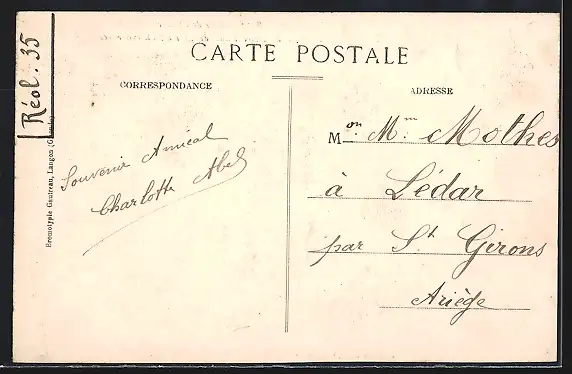 Réol. 35
CARTE POSTALE
CORRESPONDANCE
ADRESSE
Bromotypie Gautreau, Langon
Souvenir Amical
Charlotte Abel
Mon Mm Mothes
à Lédar
par St Girons
Ariège